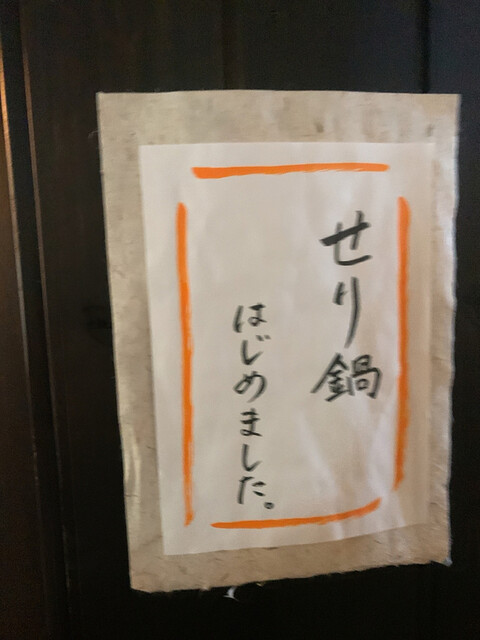 せり鍋
はじめました。